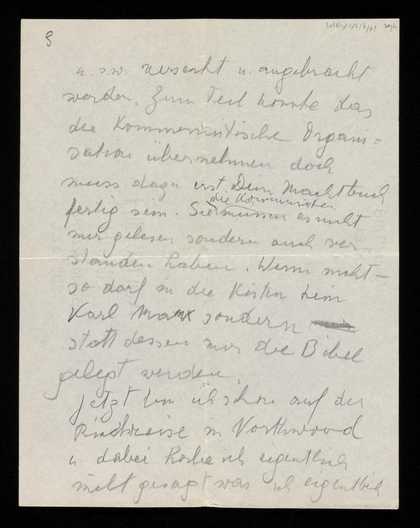 3
u. s. w. versenkt u. angebracht
werden. Zum Teil könnte das
die Kommunistische Organi=
sation übernehmen doch
muss dazu erst Dein Machtbuch
die Kommunisten
fertig sein. Sie müssen es nicht
nur gelesen sondern auch ver
standen haben. Wenn nicht –
so darf in die Kisten kein
Karl Marx sondern
statt dessen nur die Bibel
gelegt werden.
Jetzt bin ich schon auf der
Rückreise in Northwood
u. dabei habe ich eigentlich
nicht gesagt was ich eigentlich